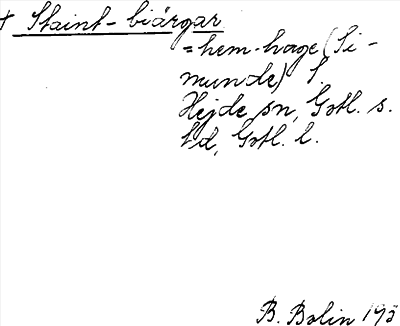 † Staint-biärgar
= hem-hage (Si-
munde) f.
Hejde sn, Gotl. s.
td, Gotl. l.
B. Bolin 193